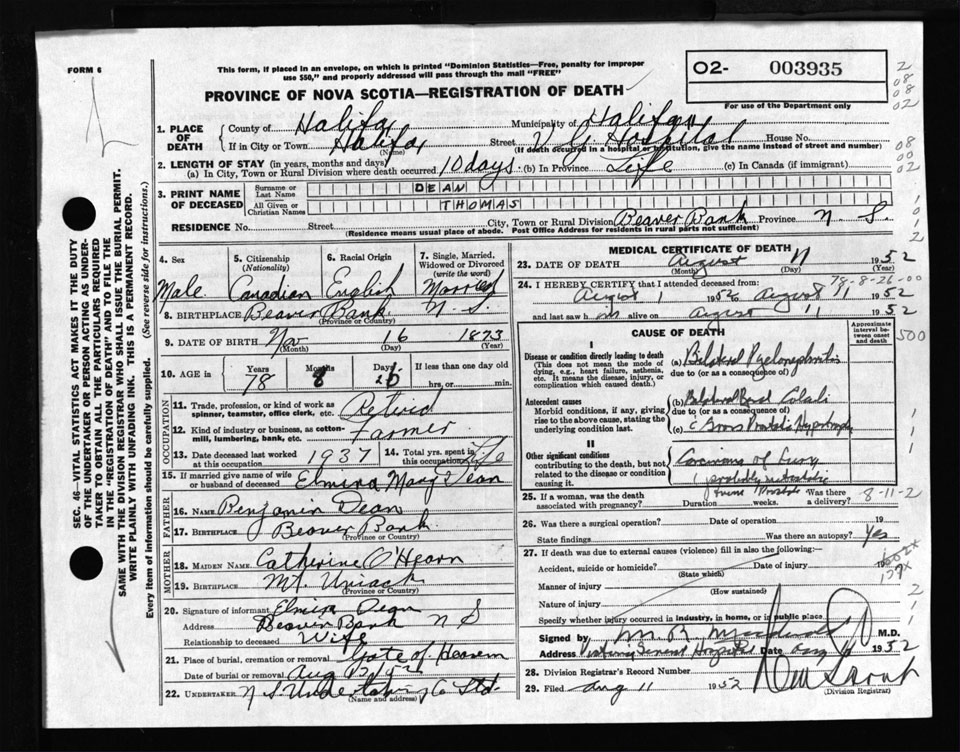 FORM 6
This form, if placed in an envelope, on which is printed "Dominion Statistics—Free, penalty for improper
use $50," and properly addressed will pass through the mail "FREE"
PROVINCE OF NOVA SCOTIA—REGISTRATION OF DEATH
O2- 003935
For use of the Department only
2
08
08
02
08
00
02
1
0
1
2
SEC. 46—VITAL STATISTICS ACT MAKES IT THE DUTY
OF THE UNDERTAKER OR PERSON ACTING AS UNDER-
TAKER TO OBTAIN ALL THE PARTICULARS REQUIRED
IN THE "REGISTRATION OF DEATH" AND TO FILE THE
SAME WITH THE DIVISION REGISTRAR WHO SHALL ISSUE THE BURIAL PERMIT.
WRITE PLAINLY WITH UNFADING INK. THIS IS A PERMANENT RECORD.
Every item of information should be carefully supplied. (See reverse side for instructions.)
1. PLACE OF DEATH
County of Halifax Municipality of Halifax
If in City or Town Halifax Street V G Hospital House No.
(Name) (If death occurred in a hospital or institution, give the name instead of street and number)
2. LENGTH OF STAY (in years, months and days)
(a) In City, Town or Rural Division where death occurred 10 days (b) In Province Life (c) In Canada (if immigrant)
3. PRINT NAME OF DECEASED
Surname or Last Name DEAN
All Given or Christian Names THOMAS
RESIDENCE No. Street City, Town or Rural Division Beaver Bank Province N. S.
(Residence means usual place of abode. Post Office Address for residents in rural parts not sufficient)
4. Sex Male
5. Citizenship (Nationality) Canadian
6. Racial Origin English
7. Single, Married, Widowed or Divorced (write the word) Married
8. BIRTHPLACE Beaver Bank N. S.
(Province or Country)
9. DATE OF BIRTH Nov 16 1873
(Month) (Day) (Year)
10. AGE in Years 78 Months 8 Days 26 If less than one day old
hrs. or min.
OCCUPATION
11. Trade, profession, or kind of work as spinner, teamster, office clerk, etc. Retired
12. Kind of industry or business, as cotton-mill, lumbering, bank, etc. Farmer
13. Date deceased last worked at this occupation 1937
14. Total yrs. spent in this occupation Life
15. If married give name of wife or husband of deceased Elmira Mary Dean
FATHER
16. Name Benjamin Dean
17. BIRTHPLACE Beaver Bank
(Province or Country)
MOTHER
18. MAIDEN NAME Catherine O'Hearn
19. BIRTHPLACE Mt. Uniack
(Province or Country)
20. Signature of informant Elmira Dean
Address Beaver Bank N S
Relationship to deceased Wife
21. Place of burial, cremation or removal Gate of Heaven
Date of burial or removal Aug 13/52
22. UNDERTAKER N S Undertaking Co Ltd.
(Name and address)
MEDICAL CERTIFICATE OF DEATH
23. DATE OF DEATH August 11 1952
(Month) (Day) (Year)
78-8-26-00
24. I HEREBY CERTIFY that I attended deceased from:
August 1 1952 to August 11 1952
and last saw him alive on August 11 1952
CAUSE OF DEATH
Approximate interval between onset and death
500
I
Disease or condition directly leading to death
(This does not mean the mode of dying, e.g., heart failure, asthenia, etc. It means the disease, injury, or complication which caused death.)
(a) Bilateral Pyelonephritis
due to (or as a consequence of)
Antecedent causes
Morbid conditions, if any, giving rise to the above cause, stating the underlying condition last.
(b) Bilateral Renal Calculi
due to (or as a consequence of)
(c) Gross Prostatic Hypertrophy
II
Other significant conditions
contributing to the death, but not related to the disease or condition causing it.
Carcinoma of Lung
(probably metastatic
from Prostate
25. If a woman, was the death associated with pregnancy? Duration weeks. Was there a delivery?
8-11-2
26. Was there a surgical operation? Date of operation 19
State findings Was there an autopsy? Yes
27. If death was due to external causes (violence) fill in also the following:—
Accident, suicide or homicide? Date of injury 19
(State which)
Manner of injury
(How sustained)
Nature of injury
Specify whether injury occurred in industry, in home, or in public place
Signed by M.D.
Address Victoria General Hospital Date Aug 1952
28. Division Registrar's Record Number
29. Filed Aug 11 1952
(Division Registrar)